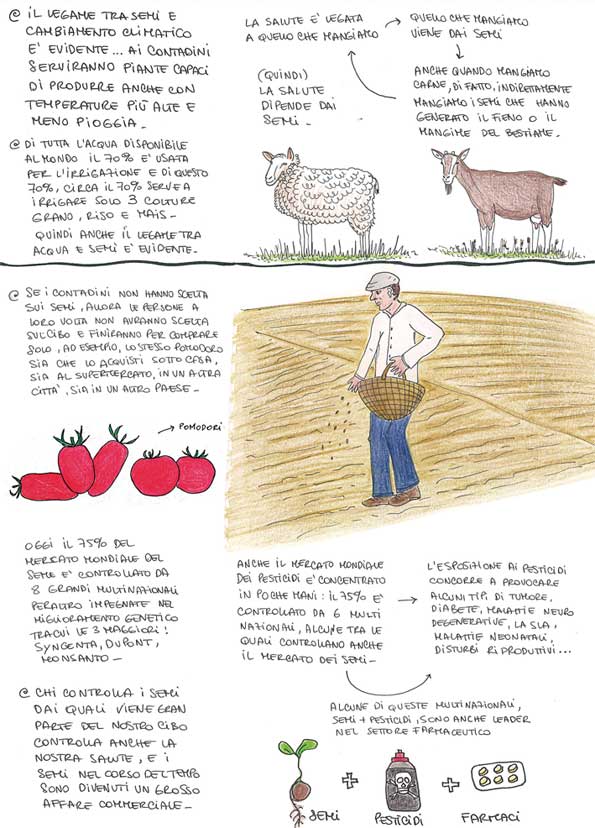 @ IL LEGAME TRA SEMI E
CAMBIAMENTO CLIMATICO
E' EVIDENTE... AI CONTADINI
SERVIRANNO PIANTE CAPACI
DI PRODURRE ANCHE CON
TEMPERATURE PIÙ ALTE E
MENO PIOGGIA -
@ DI TUTTA L'ACQUA DISPONIBILE
AL MONDO IL 70% E' USATA
PER L'IRRIGAZIONE E DI QUESTO
70%, CIRCA IL 70% SERVE A
IRRIGARE SOLO 3 COLTURE
GRANO, RISO E MAIS -
QUINDI ANCHE IL LEGAME TRA
ACQUA E SEMI E' EVIDENTE -
LA SALUTE E' LEGATA
A QUELLO CHE MANGIAMO
QUELLO CHE MANGIAMO
VIENE DAI SEMI
ANCHE QUANDO MANGIAMO
CARNE, DI FATTO, INDIRETTAMENTE
MANGIAMO I SEMI CHE HANNO
GENERATO IL FIENO O IL
MANGIME DEL BESTIAME -
(QUINDI)
LA SALUTE
DIPENDE DAI
SEMI -
@ SE I CONTADINI NON HANNO SCELTA
SUI SEMI, ALLORA LE PERSONE A
LORO VOLTA NON AVRANNO SCELTA
SUL CIBO E FINIRANNO PER COMPRARE
SOLO, AD ESEMPIO, LO STESSO POMODORO
SIA CHE LO ACQUISTI SOTTO CASA,
SIA AL SUPERMERCATO, IN UN'ALTRA
CITTA', SIA IN UN ALTRO PAESE -
POMODORI
OGGI IL 75% DEL
MERCATO MONDIALE DEL
SEME E' CONTROLLATO DA
8 GRANDI MULTINAZIONALI
PERALTRO IMPEGNATE NEL
MIGLIORAMENTO GENETICO
TRA CUI LE 3 MAGGIORI!
SYNGENTA, DUPONT,
MONSANTO -
ANCHE IL MERCATO MONDIALE
DEI PESTICIDI E' CONCENTRATO
IN POCHE MANI: IL 75% E'
CONTROLLATO DA 6 MULTI
NAZIONALI, ALCUNE TRA LE
QUALI CONTROLLANO ANCHE
IL MERCATO DEI SEMI -
L'ESPOSIZIONE AI PESTICIDI
CONCORRE A PROVOCARE
ALCUNI TIPI DI TUMORE,
DIABETE, MALATTIE NEURO
DEGENERATIVE, LA SLA,
MALATTIE NEONATALI,
DISTURBI RIPRODUTTIVI...
ALCUNE DI QUESTE MULTINAZIONALI,
SEMI + PESTICIDI, SONO ANCHE LEADER
NEL SETTORE FARMACEUTICO
@ CHI CONTROLLA I SEMI
DAI QUALI VIENE GRAN
PARTE DEL NOSTRO CIBO
CONTROLLA ANCHE LA
NOSTRA SALUTE, E I
SEMI NEL CORSO DEL TEMPO
SONO DIVENUTI UN GROSSO
AFFARE COMMERCIALE -
SEMI + PESTICIDI + FARMACI